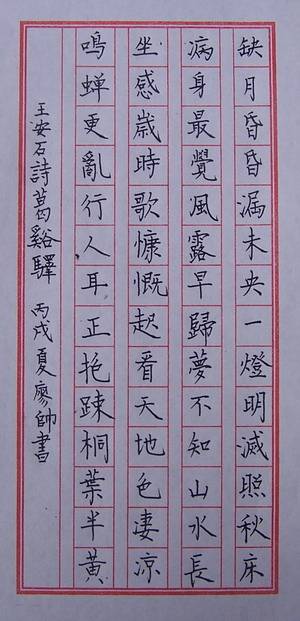 缺月昏昏漏未央一燈明滅照秋床
病身最覺風露早歸夢不知山水長
坐感歲時歌慷慨起看天地色凄涼
鳴蝉更亂行人耳正抱踈桐葉半黃
王安石詩葛谿驛 丙戌夏廖帥書